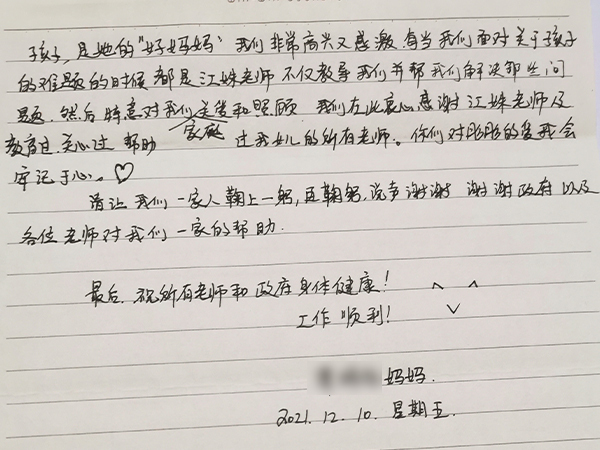 孩子，是她的“好妈妈” 我们非常高兴又感激，每当我们面对关于孩子
的难题的时候 都是江姝老师 不仅教导我们并帮我们解决那些问
题。然后 特意对我们家庭关爱和照顾 我们在此衷心感谢江姝老师及
教育过.关心过 帮助过我女儿的所有老师。你们对彤彤的爱我会
牢记于心。♡
请让我们一家人鞠上一躬，再鞠躬，说声谢谢 谢谢政府以及
各位老师对我们一家的帮助.
最后.祝所有老师和政府身体健康！
工作顺利！
妈妈.
2021.12.10.星期五.